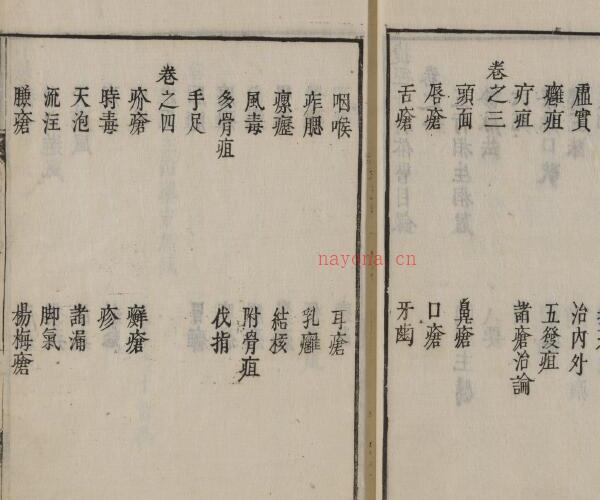 虛實　治內外
癰疽　五發疽
疔疽　諸瘡治論
卷之三
頭面　鼻瘡
唇瘡　口瘡
舌瘡　牙齒
咽喉　耳瘡
痄腮　乳癰
瘰癧　結核
風毒　附骨疽
多骨疽　伐指
手足
卷之四
疥瘡　癬瘡
時毒　疹
天泡　諸漏
流注　脚氣
臁瘡　楊梅瘡
nayona.cn